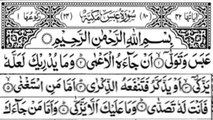 اٰيَاتُهَا ٤٢ (٨٠) سُوْرَةُ عَبَسَ مَكِّيَّةٌ (٢٤) رُكُوْعُهَا ١
بِسْمِ اللّٰهِ الرَّحْمٰنِ الرَّحِيْمِ
عَبَسَ وَتَوَلّٰٓى ۙ اَنْ جَآءَهُ الْاَعْمٰى ؕ وَمَا يُدْرِيْكَ لَعَلَّهٗ
يَزَّكّٰٓى ۙ اَوْ يَذَّكَّرُ فَتَنْفَعَهُ الذِّكْرٰى ؕ اَمَّا مَنِ اسْتَغْنٰى ۙ
فَاَنْتَ لَهٗ تَصَدّٰى ؕ وَمَا عَلَيْكَ اَلَّا يَزَّكّٰى ؕ وَاَمَّا مَنْ جَآءَكَ